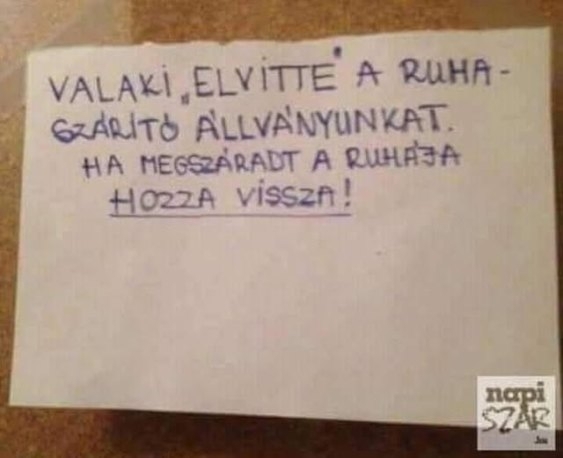 VALAKI „ELVITTE" A RUHA-
SZÁRÍTÓ ÁLLVÁNYUNKAT.
HA MEGSZÁRADT A RUHÁJA
HOZZA VISSZA!
napi
SZAR
.hu